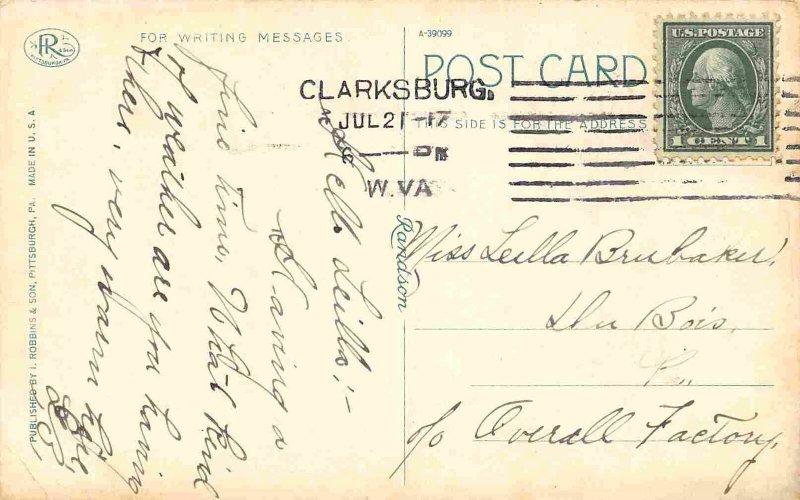 FOR WRITING MESSAGES
A-39099
POST CARD
THIS SIDE IS FOR THE ADDRESS
U.S.POSTAGE
1 CENT 1
CLARKSBURG.
JUL 21 -17
PM
W.VA
Hello Leilla;-
Having a
fine time, What kind
of weather are you having
there, very warm here
Miss Leilla Brubaker,
Du Bois,
Pa.
c/o Overall Factory,
Randson
PR
& Son
PITTSBURGH, PA.
PUBLISHED BY I. ROBBINS & SON, PITTSBURGH, PA. MADE IN U.S.A